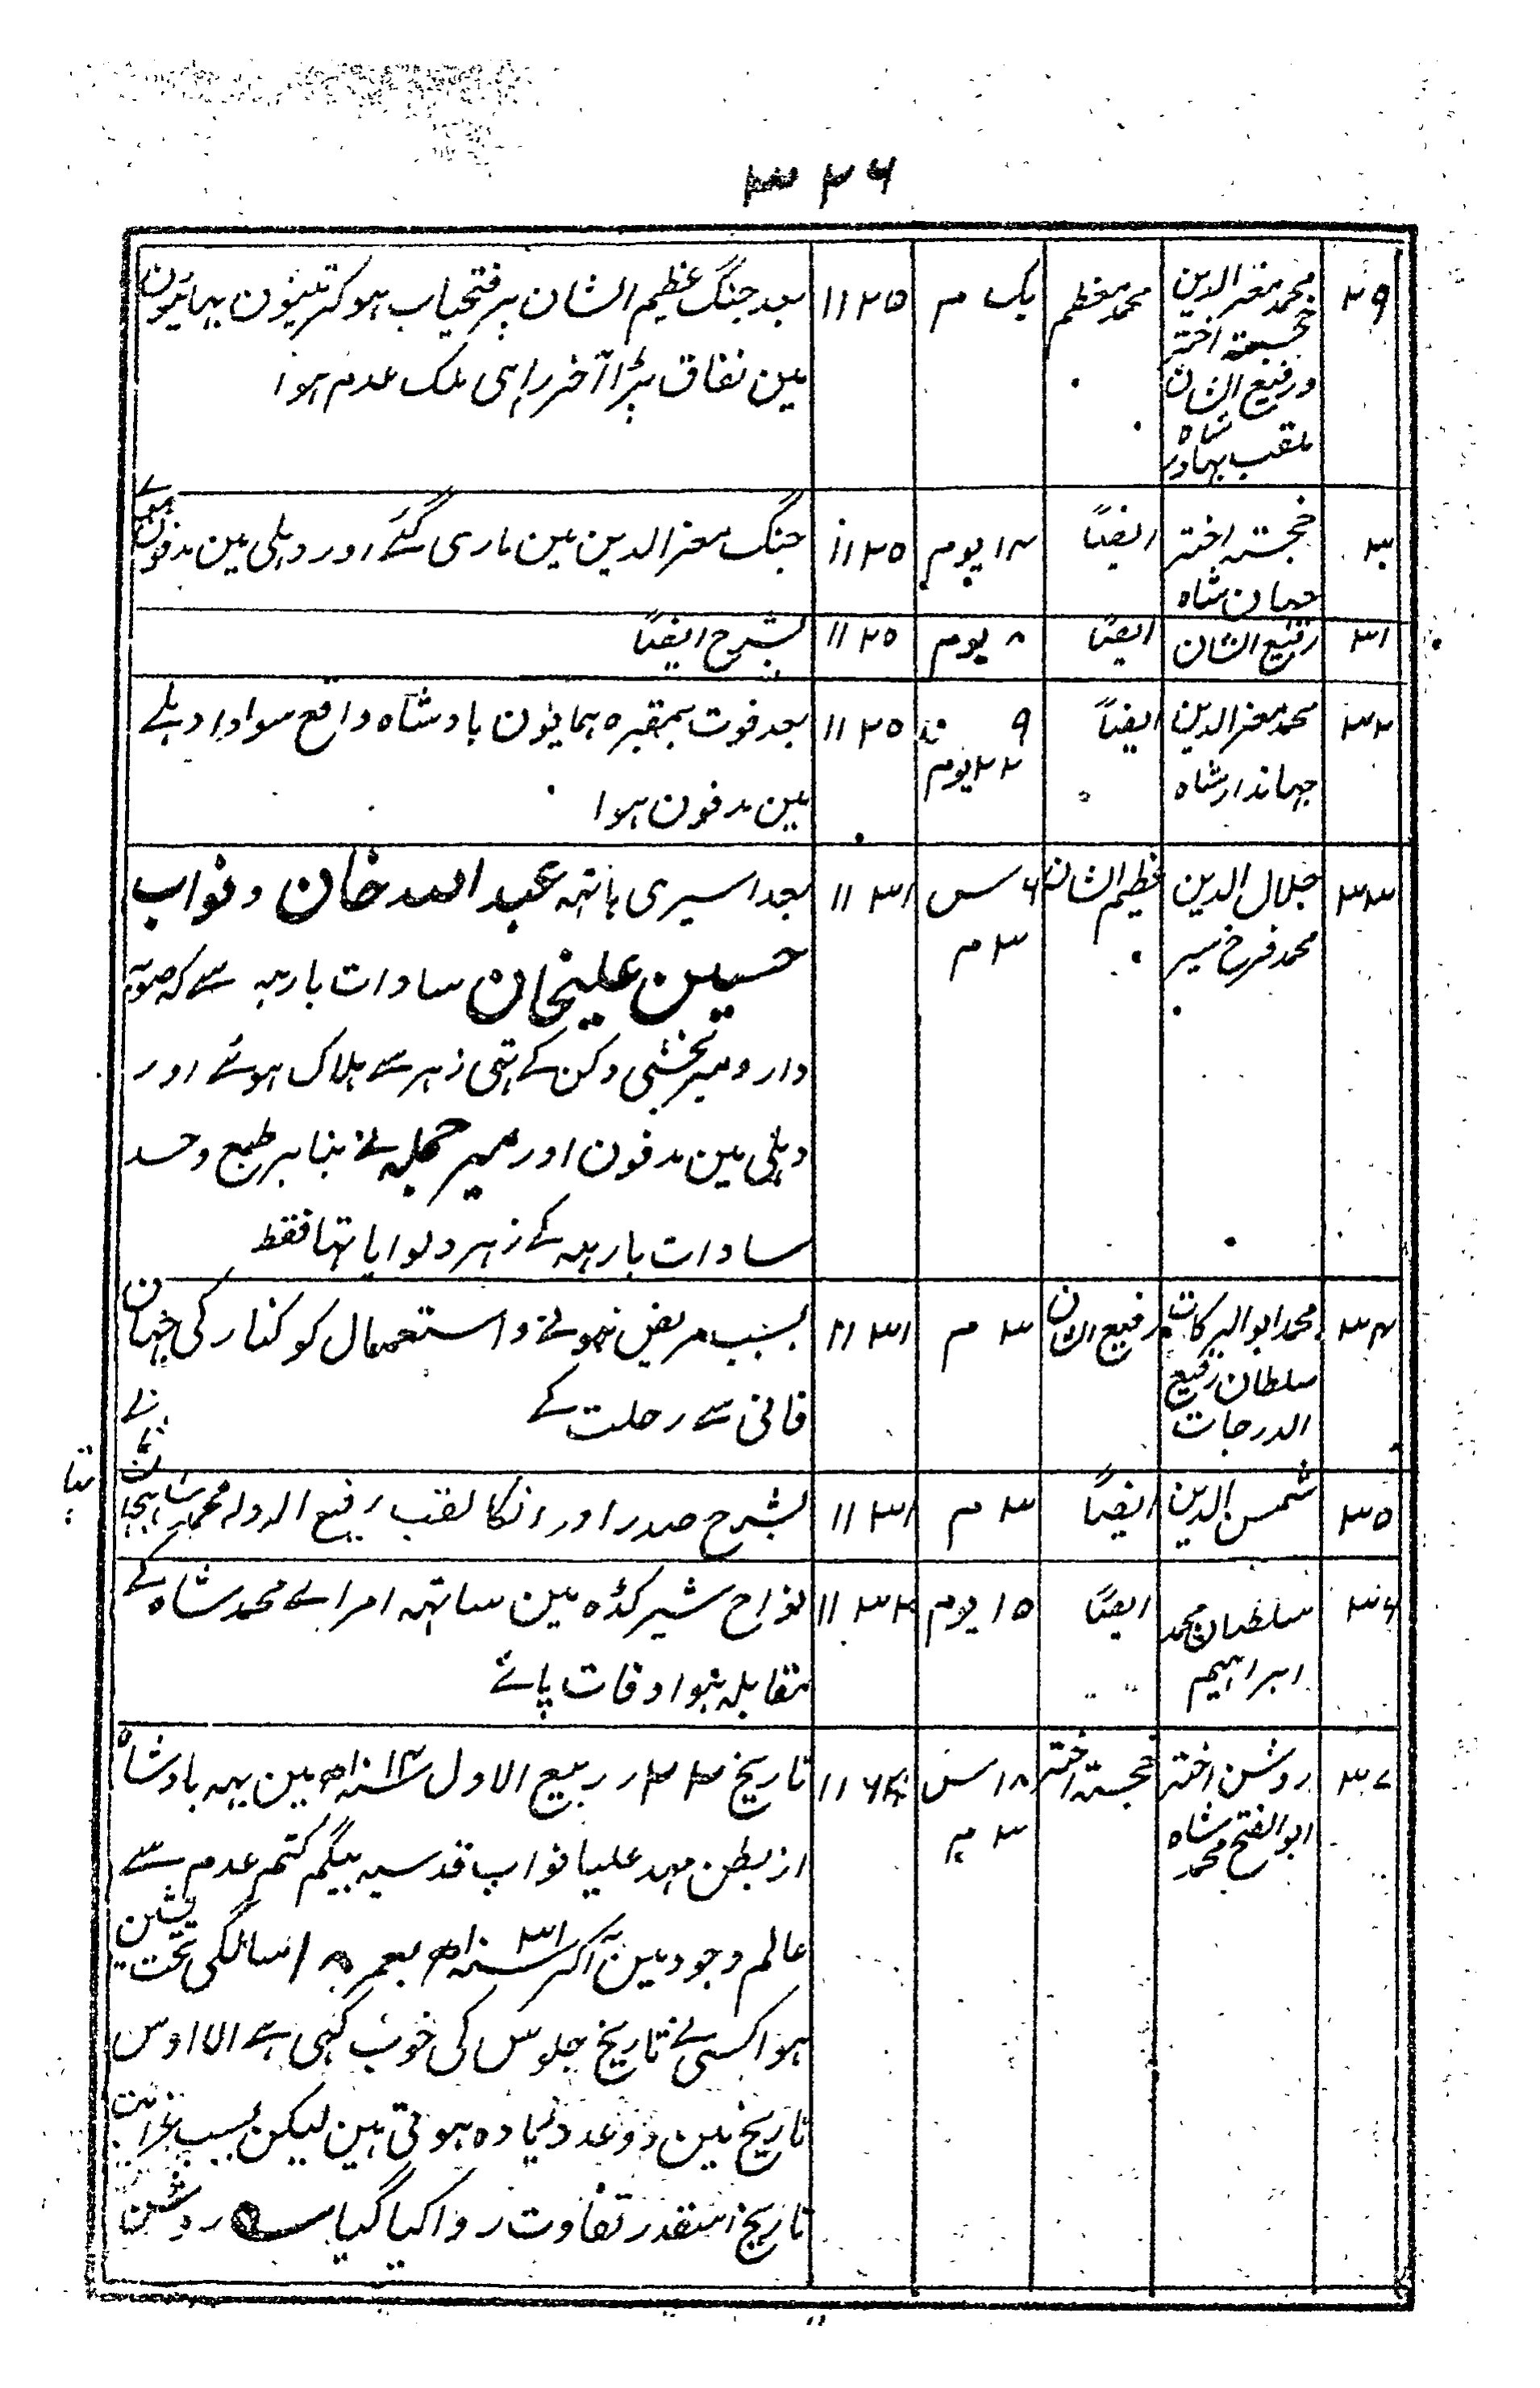 ۳۲۶
۲۹
محمد معز الدین
خجستہ اختر
و رفیع الشان
ملقب بہادر شاہ
محمد معظم
یک م
۱۱۲۵
بعد جنگ عظیم الشان پر فتحیاب ہوکر تینون بہائیون
مین نفاق پڑا آخر راہی ملک عدم ہوا
۳۰
خجستہ اختر
جہان شاہ
ایضاً
۱۴ یوم
۱۱۲۵
جنگ معز الدین مین ماری گئے اور دہلی مین مدفون ہوے
۳۱
رفیع الشان
ایضاً
۸ یوم
۱۱۲۵
بشرح ایضاً
۳۲
محمد معز الدین
جہاندار شاہ
ایضاً
۹
۲۲ یوم
۱۱۲۵
بعد فوت بمقبرہ ہمایون بادشاہ واقع سواد دہلے
مین مدفون ہوا
۳۳
جلال الدین
محمد فرخ سیر
عظیم الشان
۶ س
۳ م
۱۱۳۱
بعد اسیری ہاتہہ عبد اللہ خان و نواب
حسین علیخان سادات بارہہ سے کہ صوبہ
دار و میر بخشی دکن کے تہی زہر سے ہلاک ہوئے اور
دہلی مین مدفون اور میر جملہ نے بنا بر طمع و حسد
سادات بارہہ کے زہر دلوایا تہا فقط
۳۴
محمد ابو البرکات
سلطان رفیع
الدرجات
رفیع الشان
۳ م
۱۱۳۱
بسبب مریض ہونے و استعمال کوکنار کی جہان
فانی سے رحلت کے
۳۵
شمس الدین
ایضاً
۳ م
۱۱۳۱
بشرح صدر اور انکا لقب رفیع الدولہ محمد شاہجہان ثانی
تہا
۳۶
سلطان محمد
ابراہیم
ایضاً
۱۵ یوم
۱۱۳۲
نواح شیر گڈہ مین ساتہہ امراے محمد شاہ کے
مقابلہ ہوا وفات پائے
۳۷
روشن اختر
ابو الفتح محمد شاہ
خجستہ اختر
۱۸ س
۳ م
تاریخ ۲۳ ربیع الاول سنہ ۱۱۱۴ مین یہہ بادشاہ
از بطن مہد علیا نواب قدسیہ بیگم کتم عدم سے
عالم وجود مین آکر سنہ ۱۱۳۱ بعمر ۱۸ سالگی تخت نشین
ہوا کسی نے تاریخ جلوس کی خوب کہی ہے الا اوس
تاریخ مین دو عدد زیادہ ہوتی ہین لیکن بسبب غرابت
تاریخ اسقدر تفاوت روا کیا گیا روشن